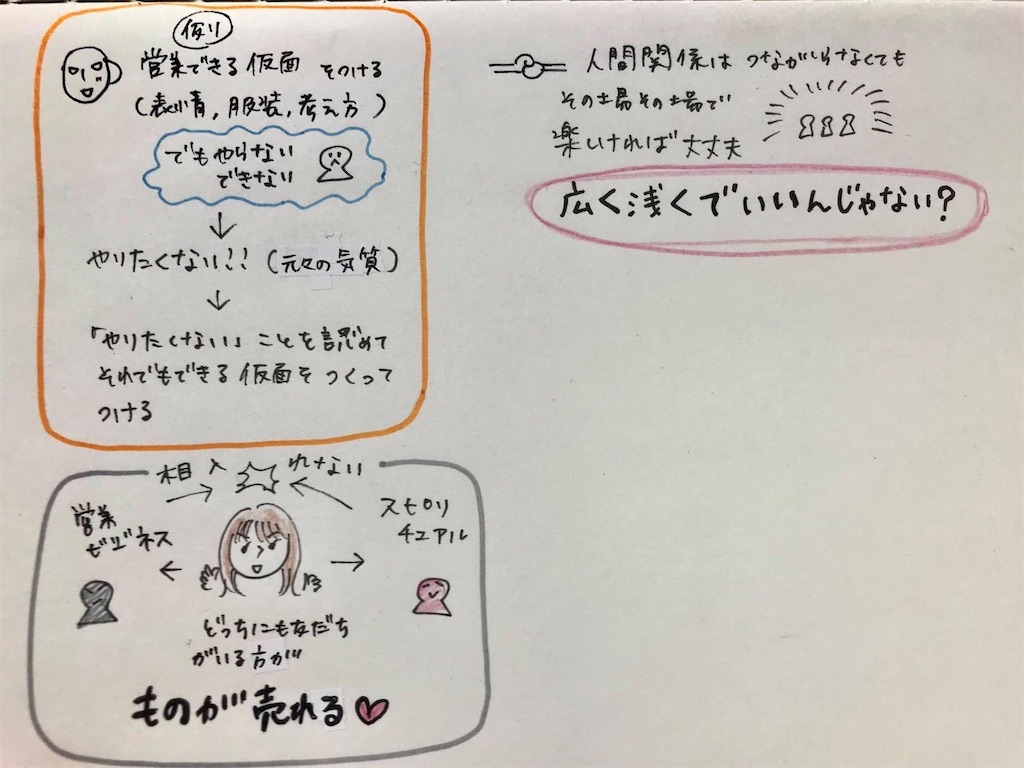 仮り
営業できる仮面をつける
(表情,服装,考え方)
でもやらない
できない
↓
やりたくない??(元々の気質)
↓
「やりたくない」ことを認めて
それでもできる仮面をつくって
つける
人間関係はつながらなくても
その場その場で
楽しければ大丈夫
広く浅くでいいんじゃない?
相入れない
営業
ビジネス
スピリ
チュアル
どっちにも友だち
がいる方が
ものが売れる